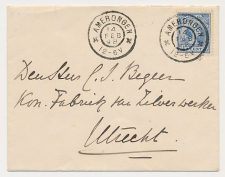 AMERONGEN
14
FEB
12-6V
AMERONGEN
12-6V
Den Heer C.J. Begeer
Kon. Fabriek van Zilverwerken
Utrecht.